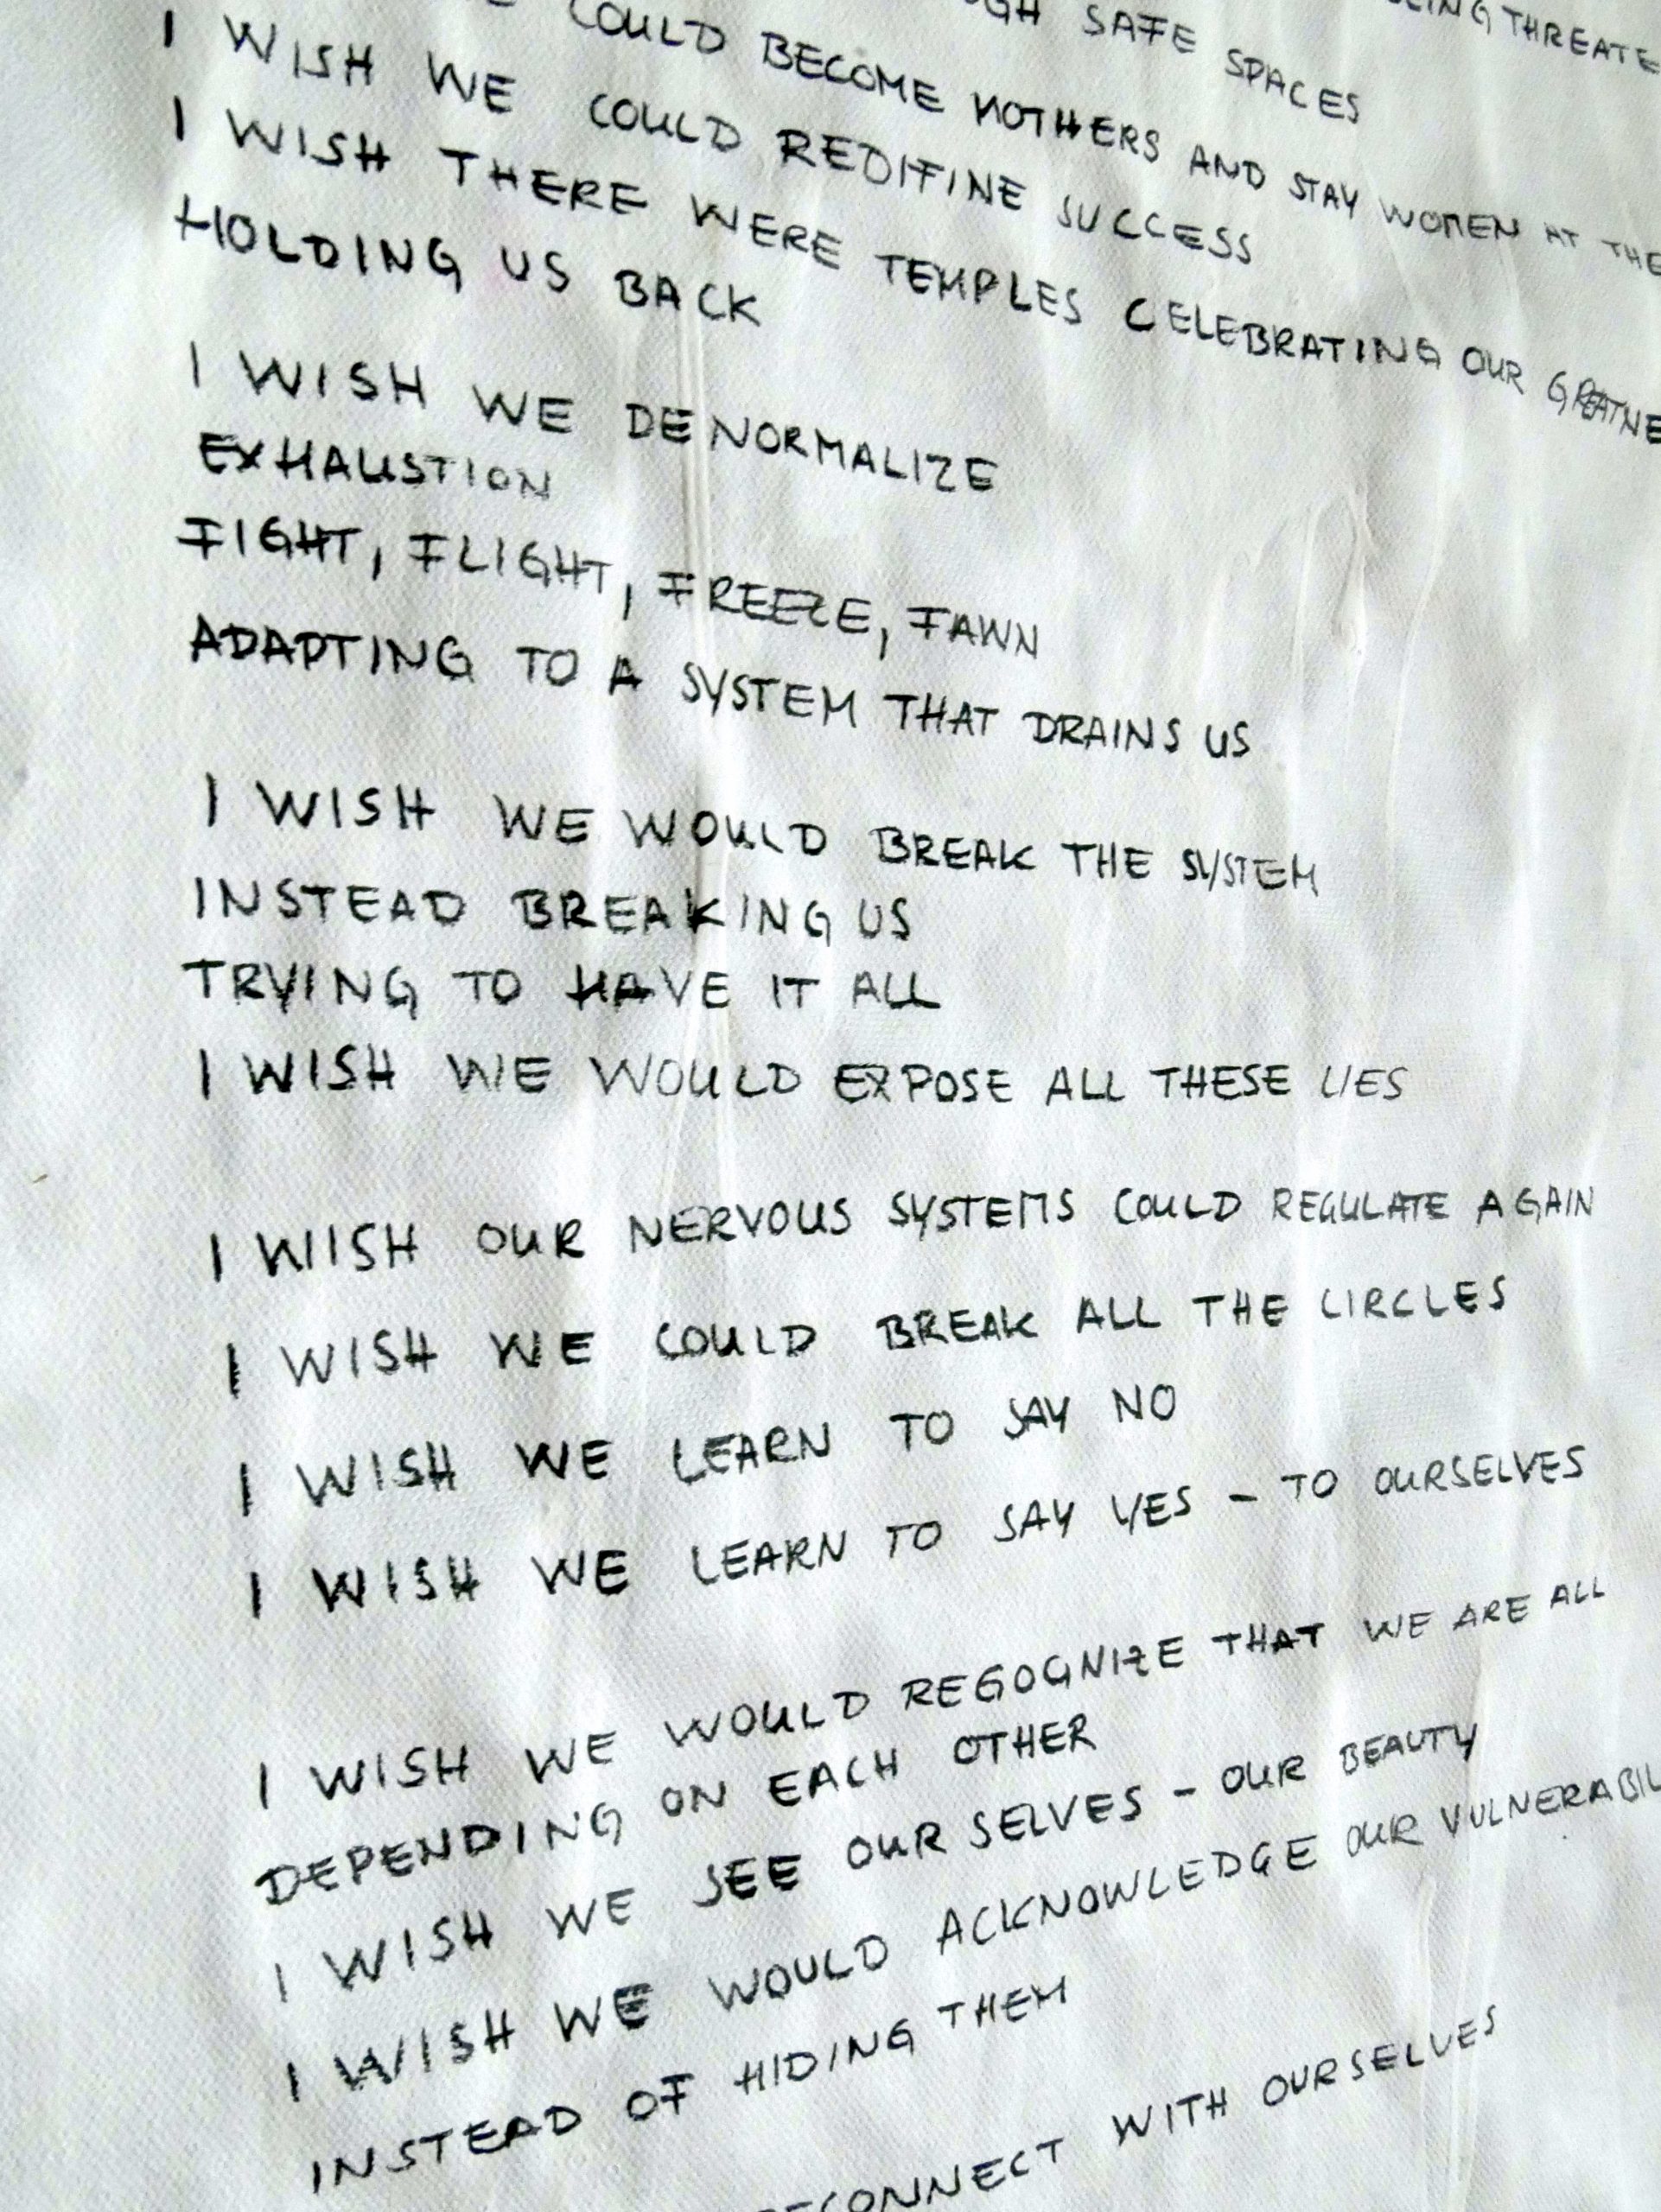 THREATE
SAFE SPACES
COULD BECOME MOTHERS AND STAY WOMEN AT THE
I WISH WE COULD REDIFINE SUCCESS
I WISH THERE WERE TEMPLES CELEBRATING OUR GREATNE
HOLDING US BACK
I WISH WE DENORMALIZE
EXHAUSTION
FIGHT, FLIGHT, FREEZE, FAWN
ADAPTING TO A SYSTEM THAT DRAINS US
I WISH WE WOULD BREAK THE SYSTEM
INSTEAD BREAKING US
TRYING TO HAVE IT ALL
I WISH WE WOULD EXPOSE ALL THESE LIES
I WISH OUR NERVOUS SYSTEMS COULD REGULATE AGAIN
I WISH WE COULD BREAK ALL THE CIRCLES
I WISH WE LEARN TO SAY NO
I WISH WE LEARN TO SAY YES - TO OURSELVES
I WISH WE WOULD REGOGNIZE THAT WE ARE ALL
DEPENDING ON EACH OTHER
I WISH WE SEE OUR SELVES - OUR BEAUTY
I WISH WE WOULD ACKNOWLEDGE OUR VULNERABIL
INSTEAD OF HIDING THEM
RECONNECT WITH OURSELVES